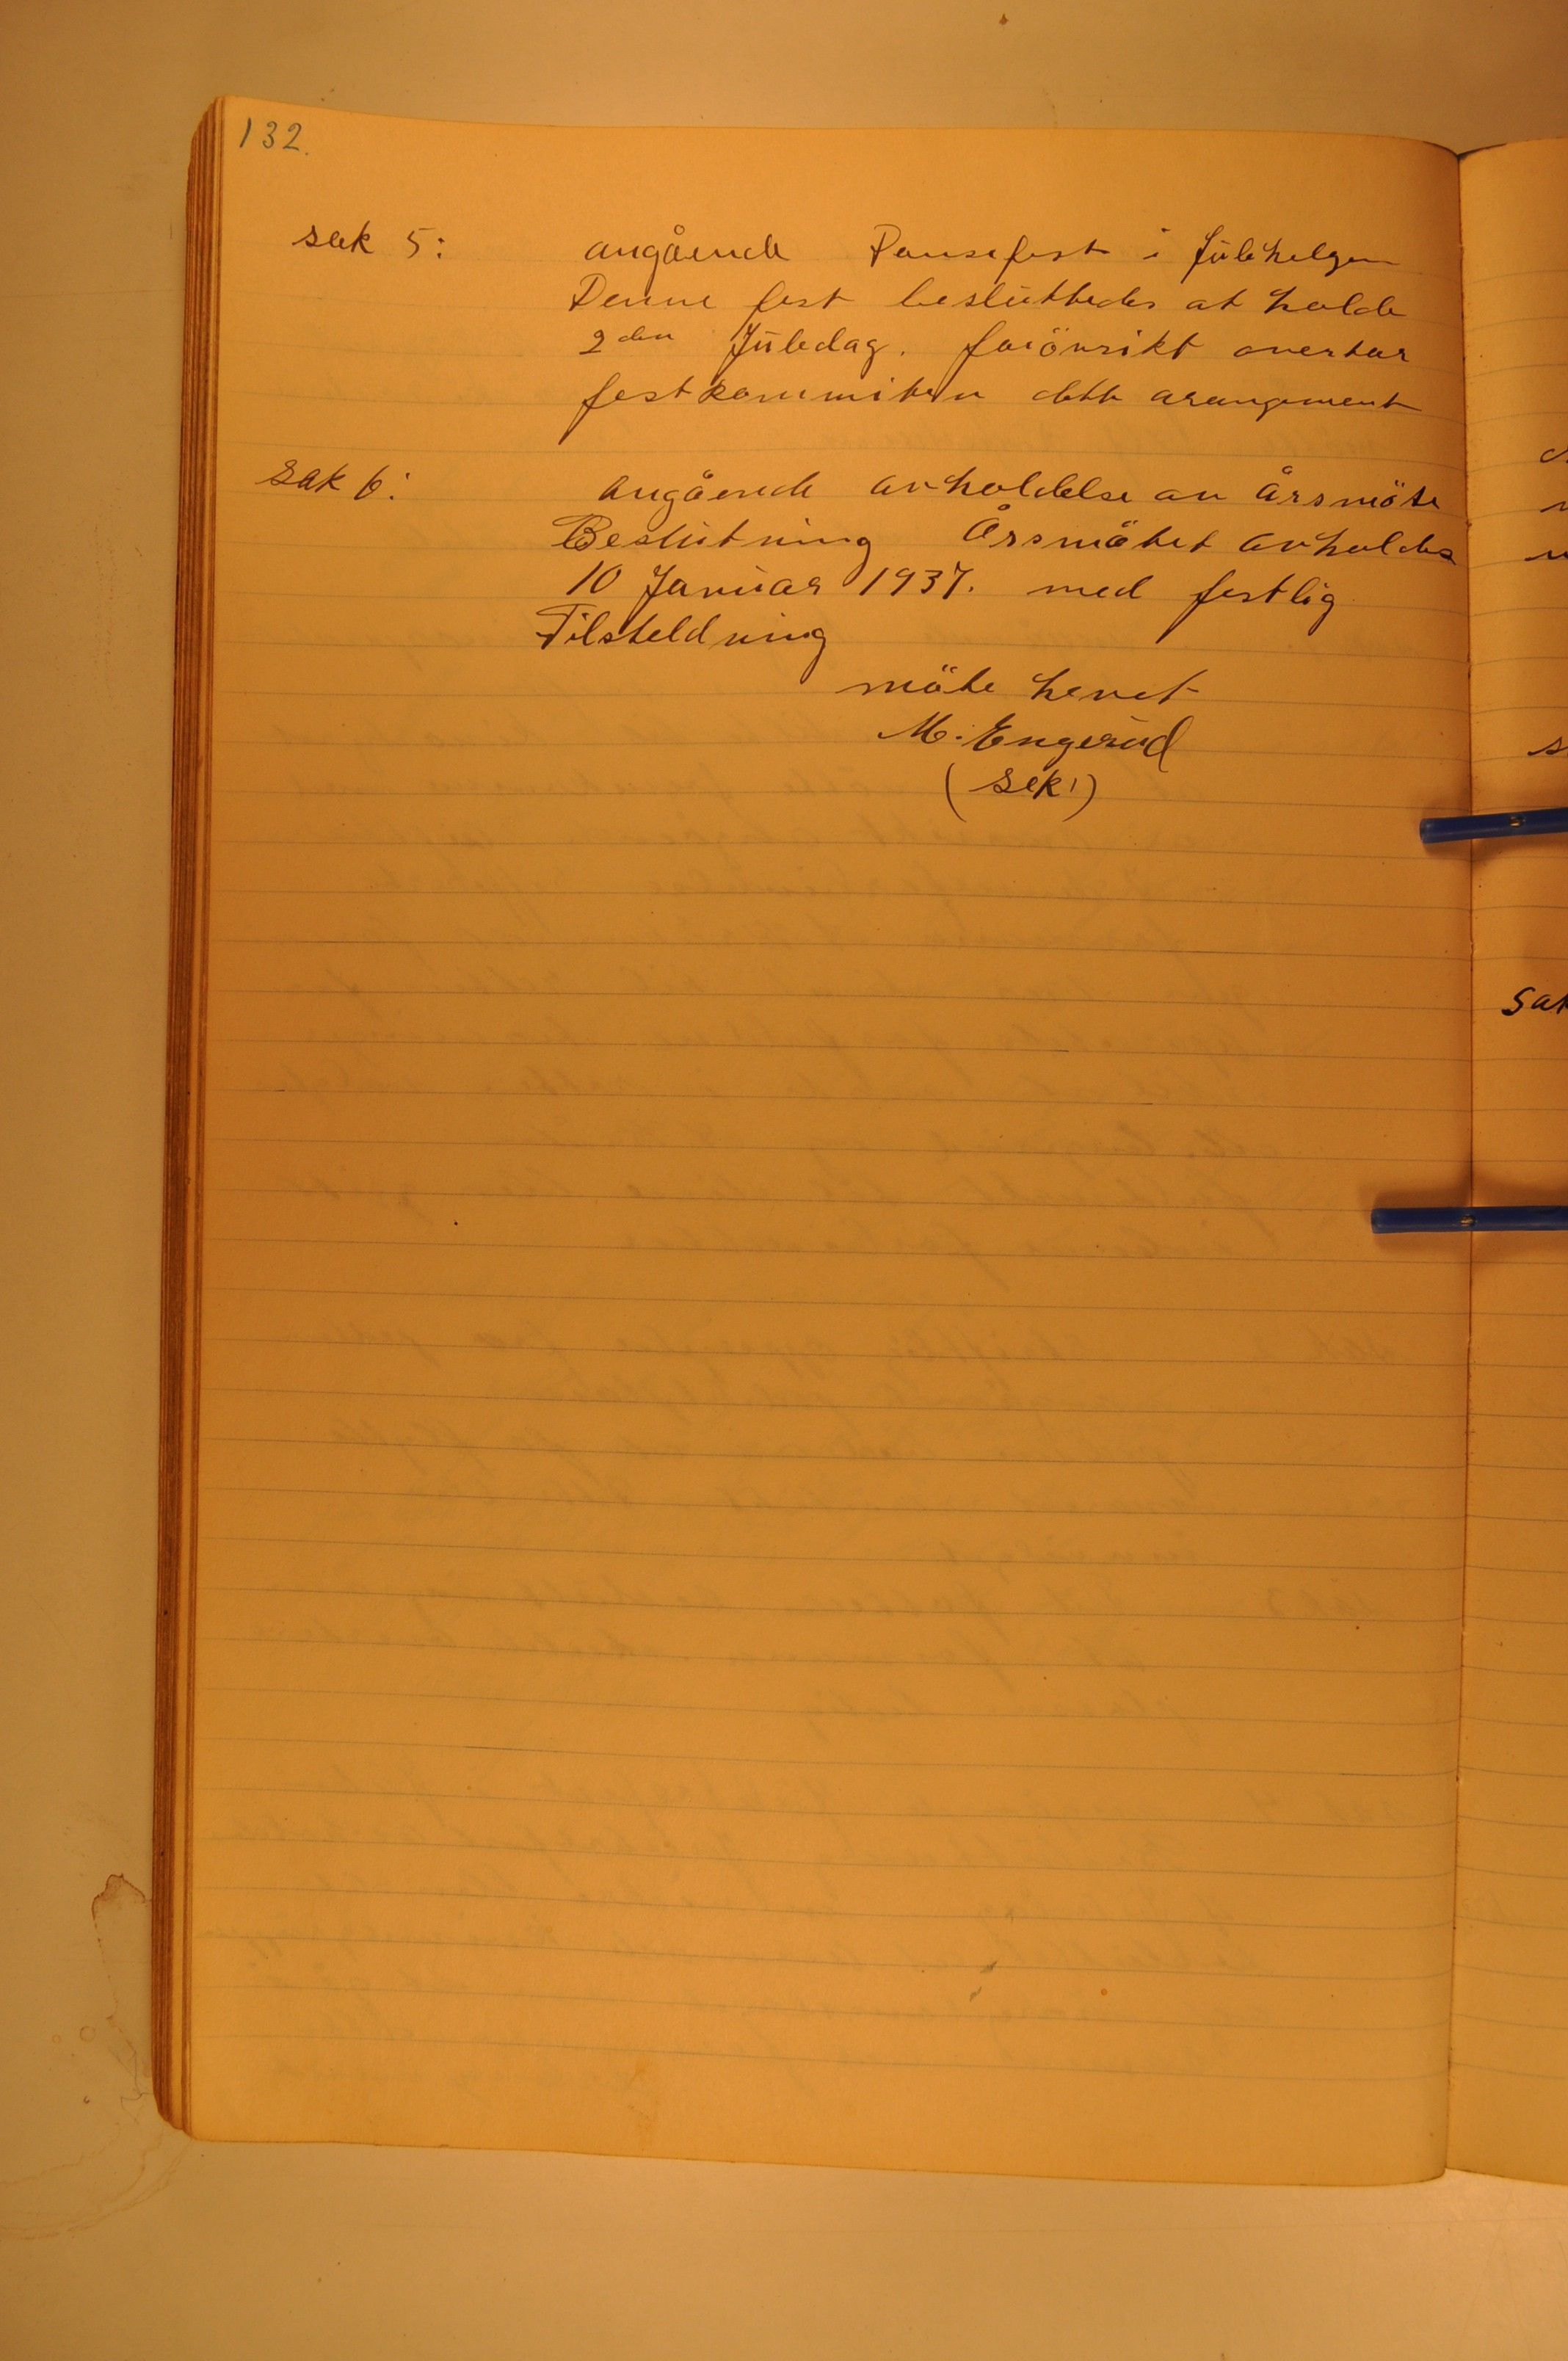 132.
sak 5: angående Dansefest i Julehelgen
Denne fest besluttedes at holde
2den Juledag. forövrikt overtar
festkommiteen dette arangement
sak 6: angående avholdelse av årsmöte
Beslutning Årsmötet avholdes
10 Januar 1937. med festlig
Tilsteldning
möte hevet
M. Engerud
(sek!)
sak